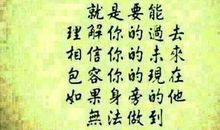 就是要能
理解你的過去
相信你的未來
包容你的現在
如果身旁的他
無法做到